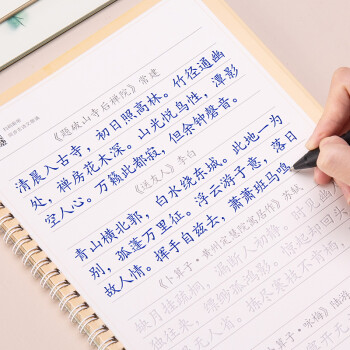 《题破山寺后禅院》常建
清晨入古寺,初日照高林。竹径通幽
处,禅房花木深。山光悦鸟性,潭影
空人心。万籁此都寂,但余钟磬音。
《送友人》李白
青山横北郭,白水绕东城。此地一为
别,孤蓬万里征。浮云游子意,落日
故人情。挥手自兹去,萧萧班马鸣
《卜算子·黄州定慧院寓居作》苏轼
缺月挂疏桐,漏断人初静。时见幽人
独往来,缥缈孤鸿影。
《卜算子·咏梅》陆游